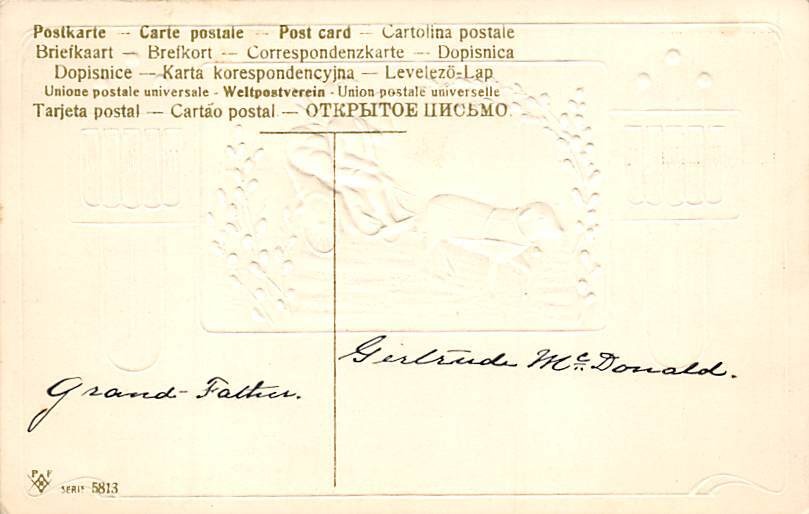 Postkarte — Carte postale — Post card — Cartolina postale
Briefkaart — Brefkort — Correspondenzkarte — Dopisnica
Dopisnice — Karta korespondencyjna — Levelező-Lap
Unione postale universale - Weltpostverein - Union postale universelle
Tarjeta postal — Cartão postal — ОТКРЫТОЕ ПИСЬМО.
Gertrude Mc Donald.
Grand-Father.
P F
SERIE 5813